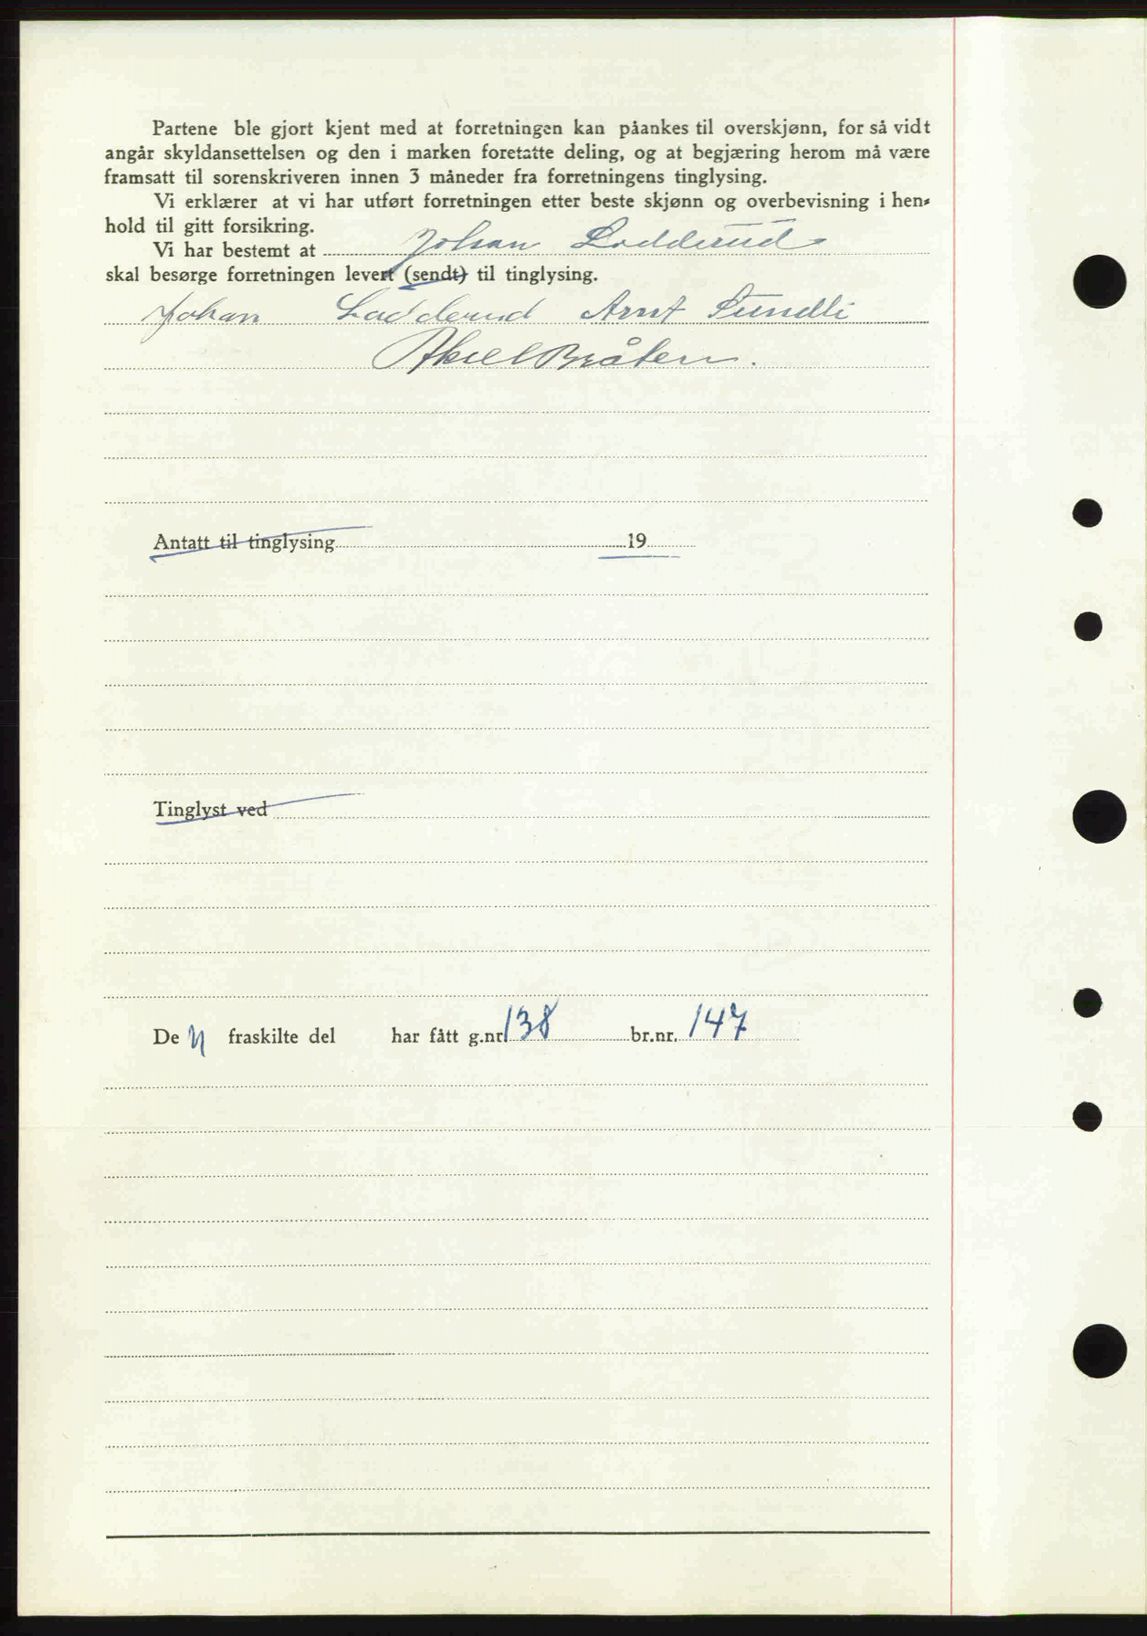 Partene ble gjort kjent med at forretningen kan påankes til overskjønn, for så vidt
angår skyldansettelsen og den i marken foretatte deling, og at begjæring herom må være
framsatt til sorenskriveren innen 3 måneder fra forretningens tinglysing.
Vi erklærer at vi har utført forretningen etter beste skjønn og overbevisning i hen-
hold til gitt forsikring.
Vi har bestemt at Johan Ladderud
skal besørge forretningen levert (sendt) til tinglysing.
Johan Ladderud Arnt Sundli
Aksel Bråten.
Antatt til tinglysing 19
Tinglyst ved
De n fraskilte del har fått g.nr. 138 br.nr. 147